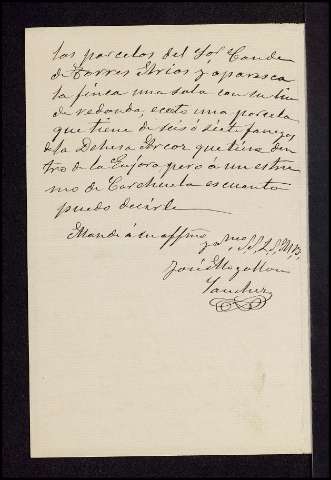 las parcelas del Sor Conde
de Torres Arias y aparesca
la finca una sola con su lin
de redonda eceto una parcela
que tiene de seis ó siete fanegas
de la Dehesa que tiene den
tro de la pero á un estre
mo de Carchuela es cuanto
puedo decirle
Mande á su affmo
José Mogollon
Sanchez